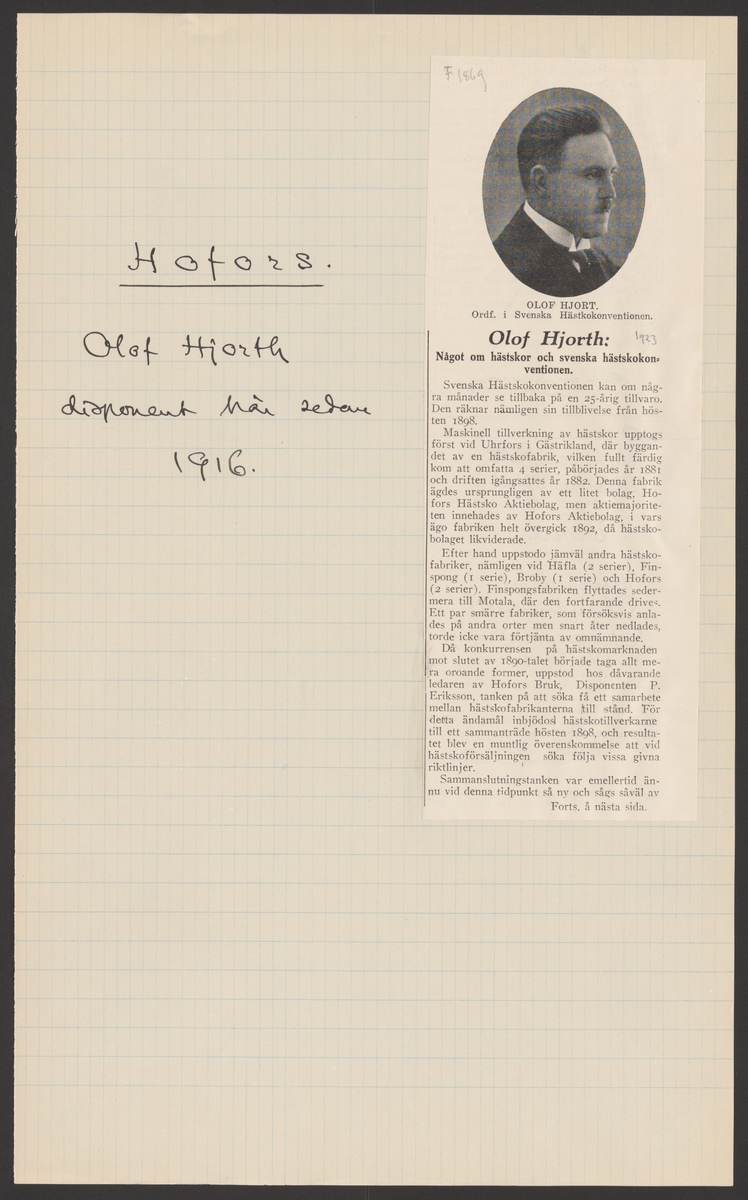 Hofors.
Olof Hjorth
disponent här sedan
1916.
F 1869
OLOF HJORT.
Ordf. i Svenska Hästkokonventionen.
Olof Hjorth:
1923
Något om hästskor och svenska hästskokon-
ventionen.
Svenska Hästskokonventionen kan om någ-
ra månader se tillbaka på en 25-årig tillvaro.
Den räknar nämligen sin tillblivelse från hös-
ten 1898.
Maskinell tillverkning av hästskor upptogs
först vid Uhrfors i Gästrikland, där byggan-
det av en hästskofabrik, vilken fullt färdig
kom att omfatta 4 serier, påbörjades år 1881
och driften igångsattes år 1882. Denna fabrik
ägdes ursprungligen av ett litet bolag, Ho-
fors Hästsko Aktiebolag, men aktiemajorite-
ten innehades av Hofors Aktiebolag, i vars
ägo fabriken helt övergick 1892, då hästsko-
bolaget likviderade.
Efter hand uppstodo jämväl andra hästsko-
fabriker, nämligen vid Häfla (2 serier), Fin-
spong (1 serie), Broby (1 serie) och Hofors
(2 serier). Finspongsfabriken flyttades seder-
mera till Motala, där den fortfarande drives.
Ett par smärre fabriker, som försöksvis anla-
des på andra orter men snart åter nedlades,
torde icke vara förtjänta av omnämnande.
Då konkurrensen på hästskomarknaden
mot slutet av 1890-talet började taga allt me-
ra oroande former, uppstod hos dåvarande
ledaren av Hofors Bruk, Disponenten P.
Eriksson, tanken på att söka få ett samarbete
mellan hästskofabrikanterna till stånd. För
detta ändamål inbjödos hästskotillverkarne
till ett sammanträde hösten 1898, och resulta-
tet blev en muntlig överenskommelse att vid
hästskoförsäljningen söka följa vissa givna
riktlinjer.
Sammanslutningstanken var emellertid än-
nu vid denna tidpunkt så ny och sågs såväl av
Forts. å nästa sida.